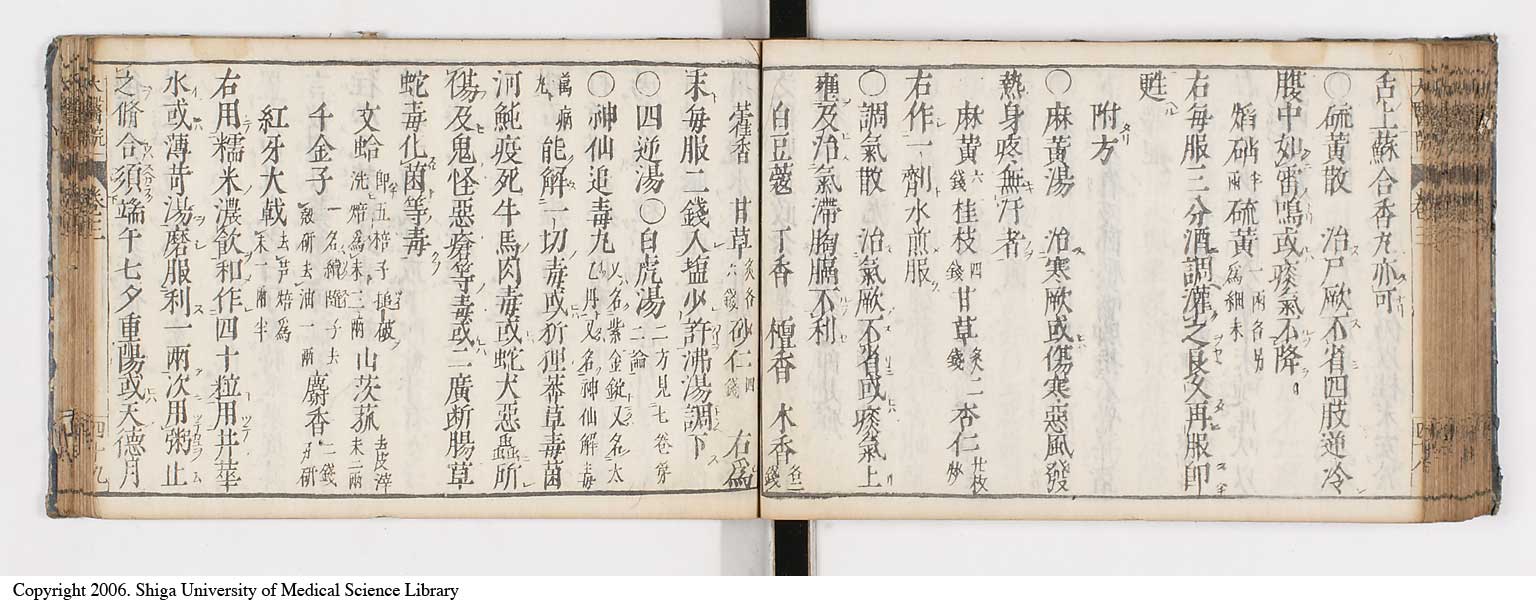 舌上蘇合香丸亦可
〇硫黄散 治尸厥不省四肢逆冷
腹中如雷鳴或痰氣不降
焰硝半兩硫黄一兩各另為細末
右毎服三分酒調灌之良久再服即
甦
附方
〇麻黄湯 治寒厥或傷寒惡風發
熱身疼無汗者
麻黄六錢桂枝四錢甘草炙二錢杏仁廿枚炒
右作一劑水煎服
〇調氣散 治氣厥不省或痰氣上
壅及治氣滯胸膈不利
白豆蔲 丁香 檀香 木香各二錢
藿香 甘草炙各六錢砂仁四錢 右為
末毎服二錢入塩少許沸湯調下
〇四逆湯〇白虎湯二方見七卷傷寒論
〇神仙追毒丸又名紫金錠又名太乙丹又名神仙解毒萬病丸
能解一切毒或狐狸莽草毒菌
河魨疫死牛馬肉毒或蛇犬惡蟲所
傷及鬼怪惡瘡等毒或二廣斷腸草
蛇毒化菌等毒
文蛤即五棓子搥破洗焙為末三兩山茨菰去皮淨末二兩
千金子一名續隨子去殼研去油一兩麝香二錢另研
紅牙大戟去芦焙為末一兩半
右用糯米濃飲和作四十粒用井華
水或薄苛湯磨服利一兩次用粥止
之脩合須端午七夕重陽或天德月
卷三
四十九
Copyright 2006. Shiga University of Medical Science Library